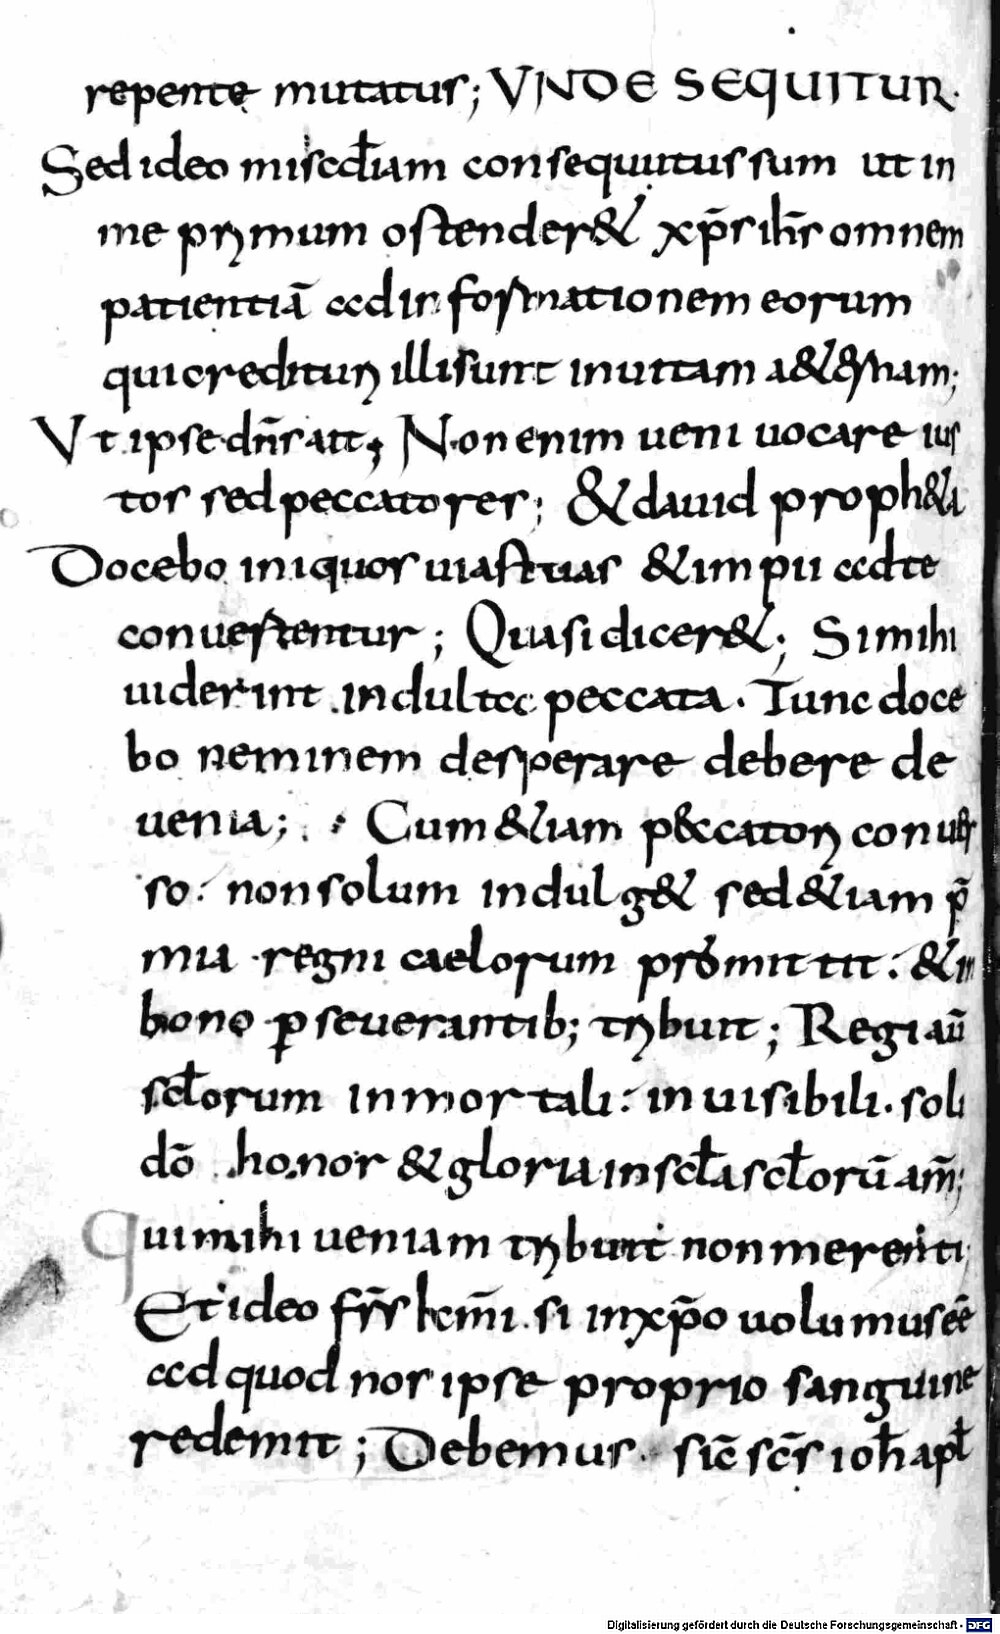 repente mutatus; VNDE SEQUITUR.
Sed ideo miscđiam consequutus sum ut in
me primum ostender& xp̄s ih̄s omnem
patientiā ad informationem eorum
qui credituri illi sunt in uitam a&ernam;
Vt ipse dn̄s ait; Non enim ueni uocare ius
tos sed peccatores; & dauid proph&a
Docebo iniquos uias tuas & impii ad te
conuertentur; Quasi dicer&; Si mihi
uiderint indulta peccata. Tunc doce
bo neminem desperare debere de
uenia; Cum &iam peccatori conuer
so: non solum indulg& sed &iam p̄
mia regni caelorum promittit: & in
bono perseuerantib; tribuit; Regi aū
sclorum inmortali: inuisibili. soli
dō honor & gloria in scla sclorū am̄;
qui mihi ueniam tribuit non merenti;
Et ideo fr̄s km̄i. si in xp̄o uolumus eē
ad quod nos ipse proprio sanguine
redemit; Debemus. sic̄ sc̄s ioh apl
Digitalisierung gefördert durch die Deutsche Forschungsgemeinschaft - DFG